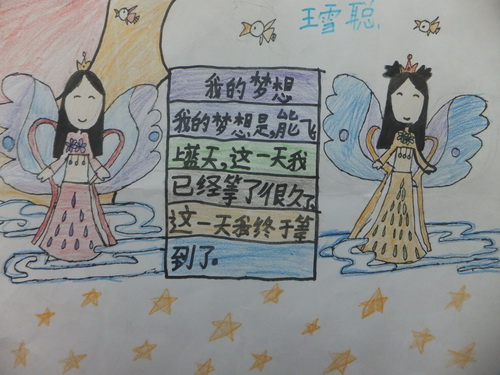 王雪聪
我的梦想
我的梦想是,能飞
上蓝天,这一天我
已经等了很久了
这一天我终于等
到了。